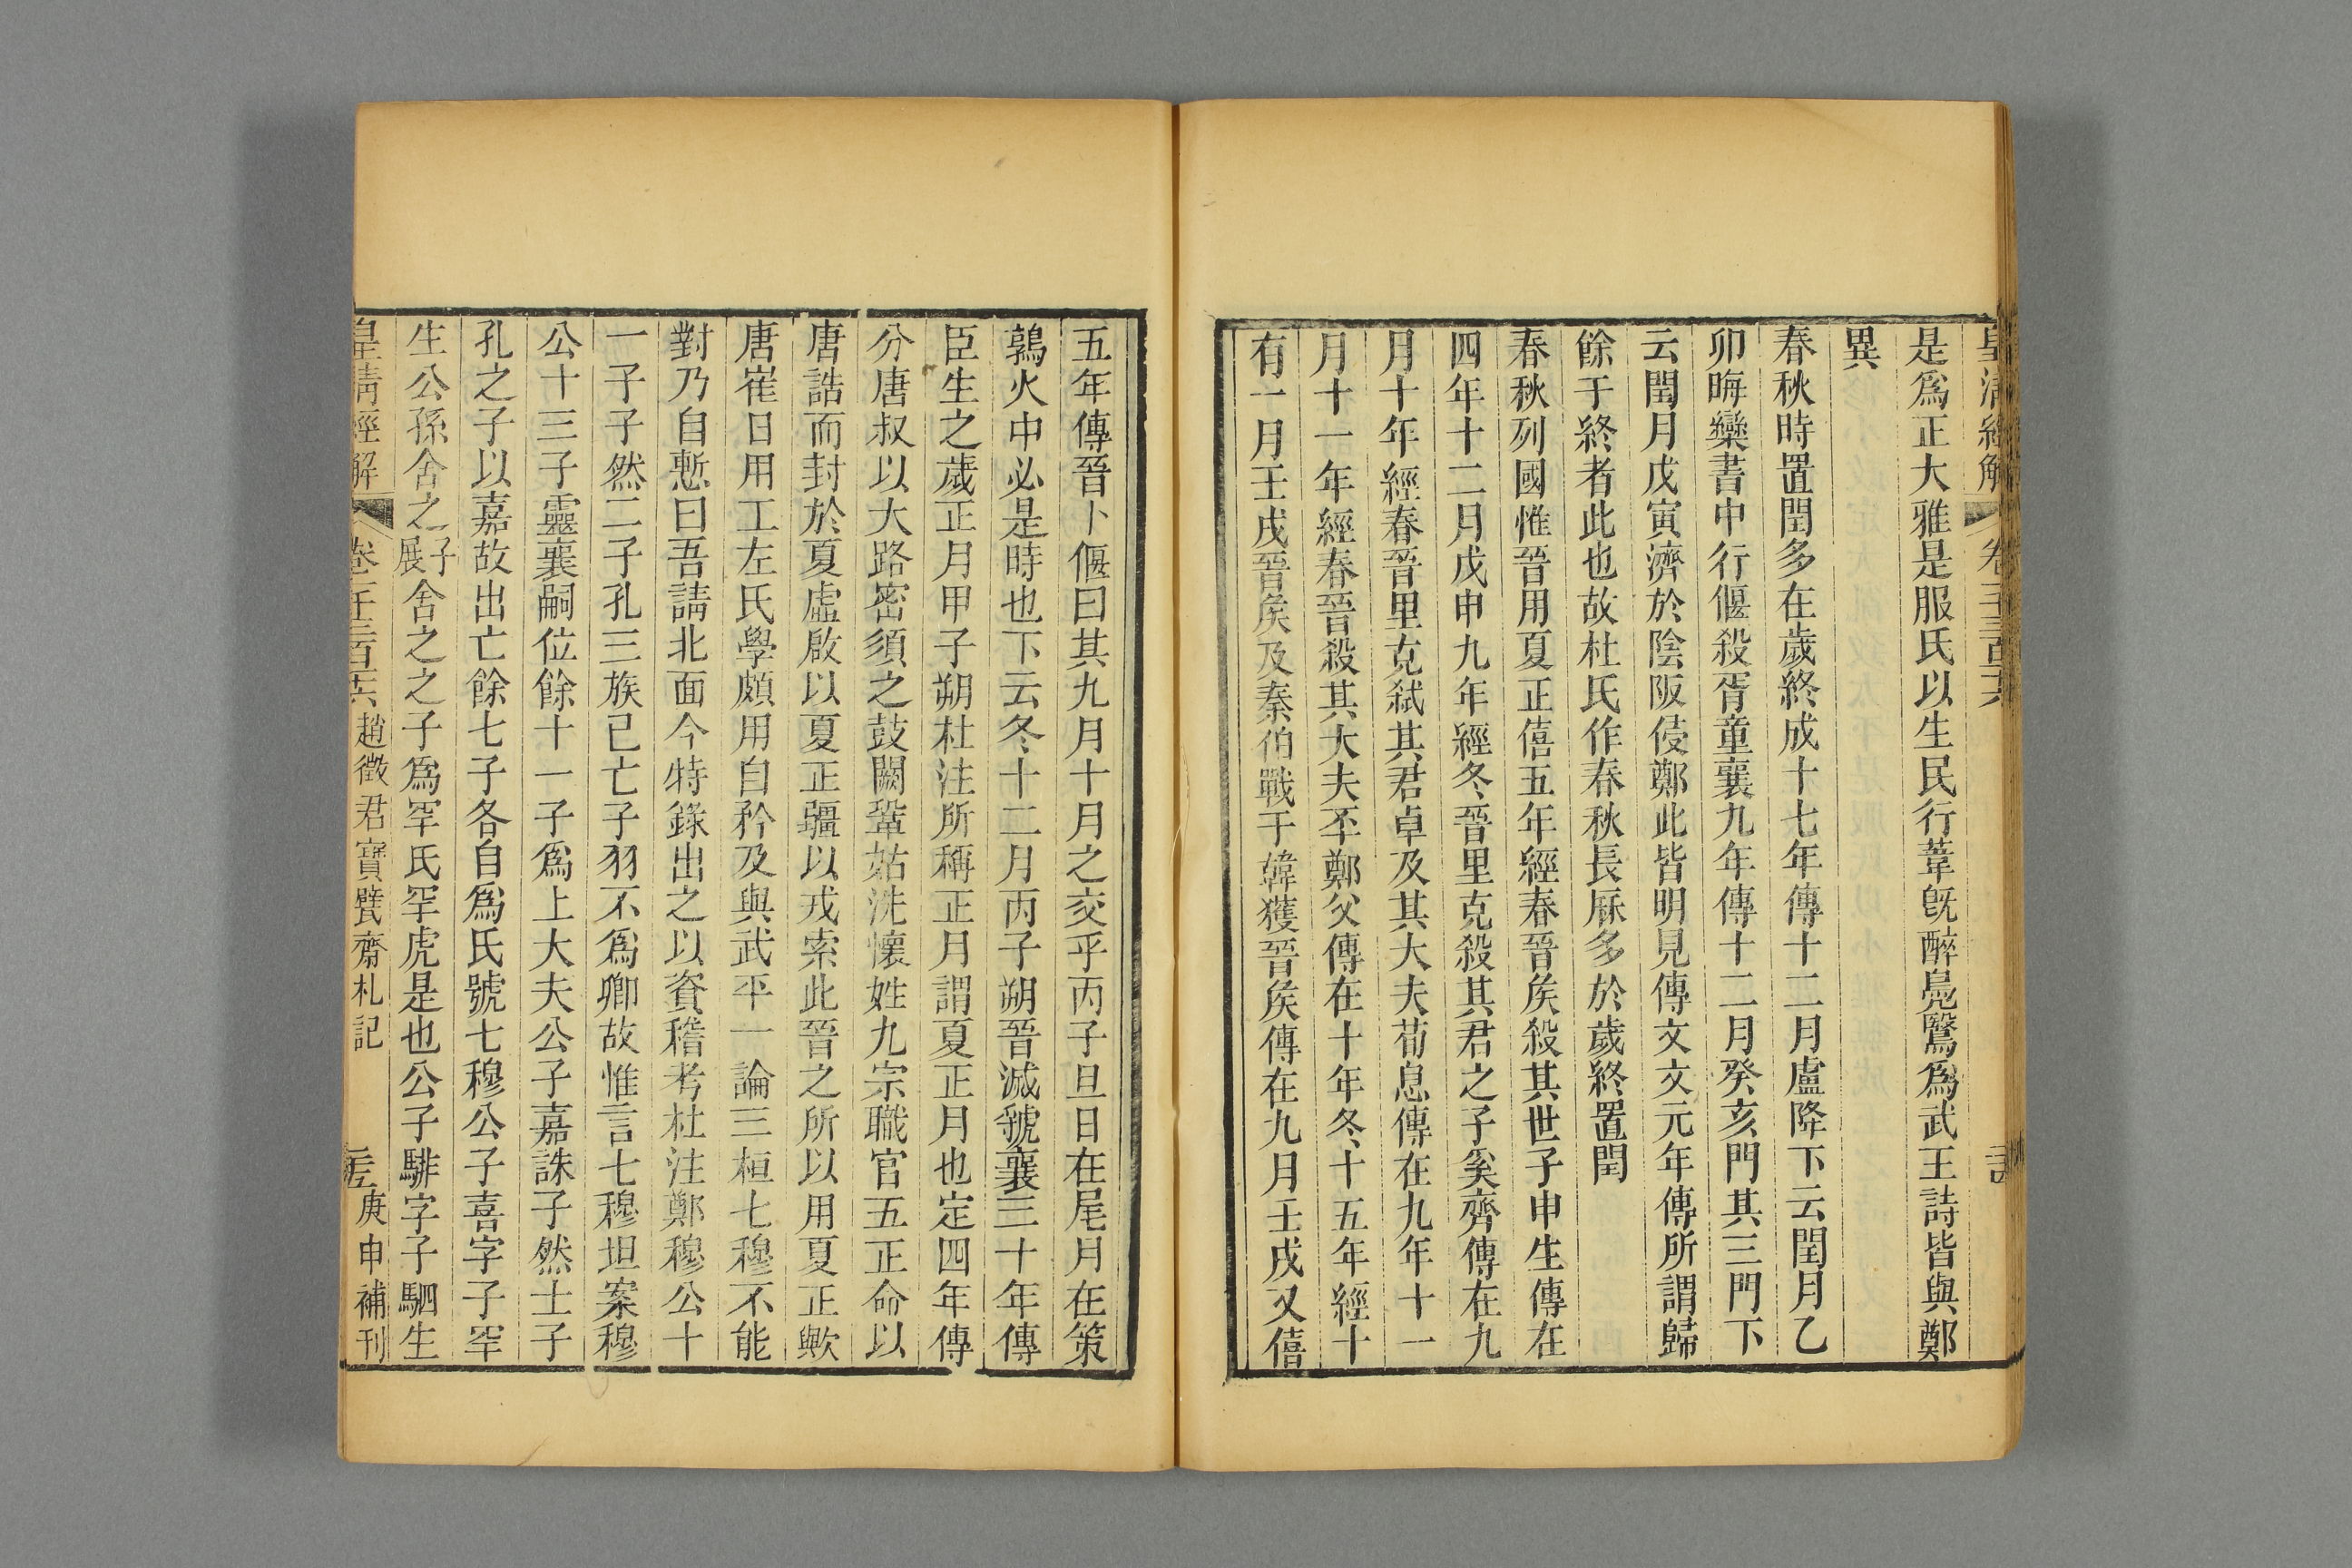 皇清經解
是爲正大雅是服氏以生民行葦旣醉鳧鷖爲武王詩皆與鄭
異
春秋時置閏多在歲終成十七年傳十二月盧降下云閏月乙
卯晦欒書中行偃殺胥童襄九年傳十二月癸亥門其三門下
云閏月戊寅濟於陰阪侵鄭此皆明見傳文文元年傳所謂歸
餘于終者此也故杜氏作春秋長厤多於歲終置閏
春秋列國惟晉用夏正僖五年經春晉矦殺其世子申生傳在
四年十二月戊申九年經冬晉里克殺其君之子奚齊傳在九
月十年經春晉里克弒其君卓及其大夫荀息傳在九年十一
月十一年經春晉殺其大夫丕鄭父傳在十年冬十五年經十
有一月壬戌晉矦及秦伯戰于韓獲晉矦傳在九月壬戌又僖
五年傳晉卜偃曰其九月十月之交乎丙子旦日在尾月在策
鶉火中必是時也下云冬十二月丙子朔晉滅虢襄三十年傳
臣生之歲正月甲子朔杜注所稱正月謂夏正月也定四年傳
分唐叔以大路密須之鼓闕鞏姑洗懷姓九宗職官五正命以
唐誥而封於夏虛啟以夏正疆以戎索此晉之所以用夏正歟
唐崔日用工左氏學頗用自矜及與武平一論三桓七穆不能
對乃自慙曰吾請北面今特錄出之以資稽考杜注鄭穆公十
一子子然二子孔三族已亡子羽不爲卿故惟言七穆坦案穆
公十三子靈襄嗣位餘十一子爲上大夫公子嘉誅子然士子
孔之子以嘉故出亡餘七子各自爲氏號七穆公子喜字子罕
生公孫舍之子展舍之之子爲罕氏罕虎是也公子騑字子駟生
皇清經解 卷一千三百十六 趙徵君寶甓齋札記 庚申補刊